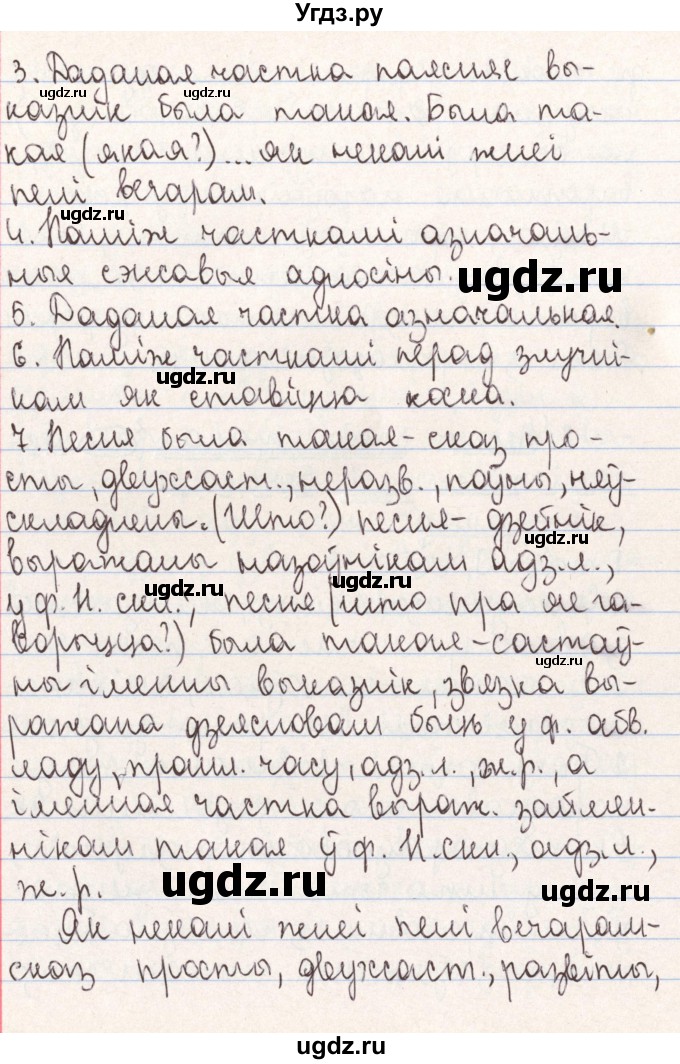 Угдз.ру
3. Даданая частка паясняе вы-
казнік была такая. Была та-
кая (якая?)... як некалі жнеі
пелі вечарам.
4. Паміж часткамі азначаль-
ныя сэнсавыя адносіны.
5. Даданая частка азначальная.
6. Паміж часткамі перад злучні-
кам як ставіцца коска.
7. Песня была такая- сказ про-
сты, двухсаст., неразв., поўны, няў-
складнены. (Што?) песня- дзейнік,
выражаны назоўнікам адз.л.,
у ф. Н. скл., песня (што пра яе га-
ворыцца?) была такая -састаў-
ны іменны выказнік, звязка вы-
ражана дзеясловам быць у ф. абв.
ладу, прошл. часу, адз.л., ж.р., а
іменная частка выраж. займен-
нікам такая ў ф. Н.скл., адз.л.,
ж.р.
Як некалі жнеі пелі вечарам-
сказ просты, двухсаст., развіты,
ugdz.ru
ugdz.ru
ugdz.ru
ugdz.ru
ugdz.ru
ugdz.ru
ugdz.ru
ugdz.ru
ugdz.ru
ugdz.ru
ugdz.ru
ugdz.ru
ugdz.ru